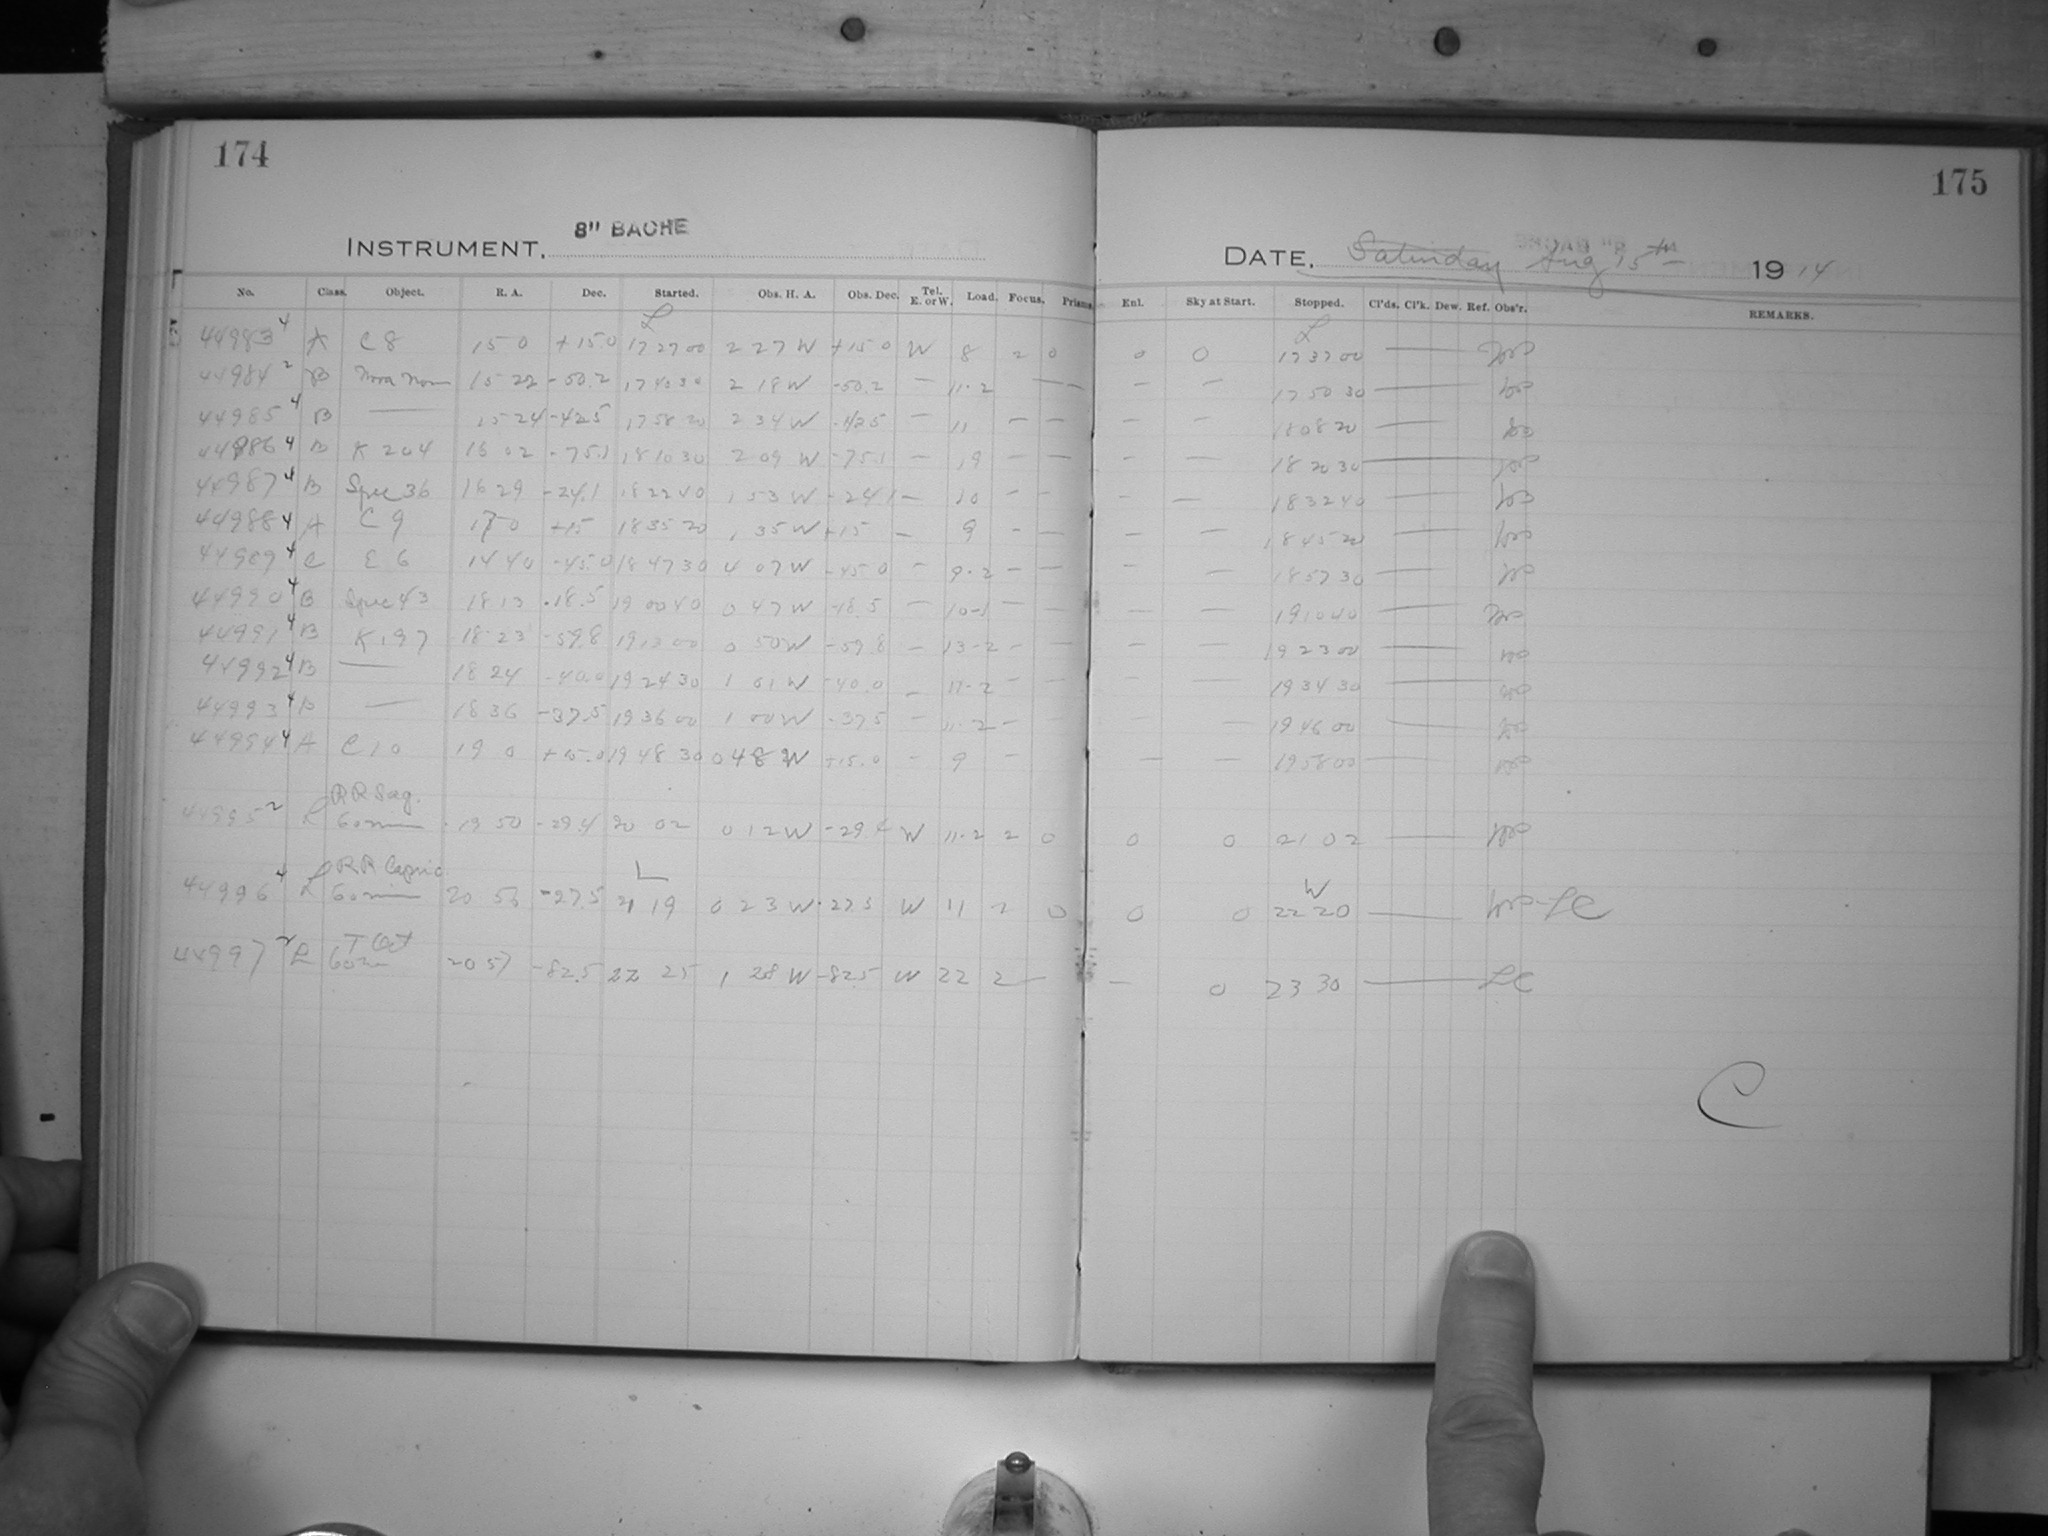 174
175
INSTRUMENT. 8" BACHE
DATE. Saturday Aug 15th 1914
No. Class. Object. R. A. Dec. Started. Obs. H. A. Obs. Dec. Tel. E. or W. Load. Focus. Prisms. Enl. Sky at Start. Stopped. Cl'ds. Cl'k. Dew. Ref. Obs'r. REMARKS.
L L
44983 4 A C 8 15 0 +15.0 17 27 00 2 27 W +15.0 W 8 2 0 0 0 17 37 00 —
44984 2 B Nova Nor 15 22 -50.2 17 40 30 2 18 W -50.2 — 11-2 — — — — 17 50 30 —
44985 4 B — 15 24 -42.5 17 58 20 2 34 W -42.5 — 11 — — — — 18 08 20 —
44986 4 B K 204 16 02 -75.1 18 10 30 2 09 W -75.1 — 19 — — — — 18 20 30 —
44987 4 B Spec 36 16 29 -24.1 18 22 40 1 53 W -24.1 — 10 — — — — 18 32 40 —
44988 4 A C 9 17 0 +15 18 35 20 1 35 W +15 — 9 — — — — 18 45 20 —
44989 4 C E 6 14 40 -45.0 18 47 30 4 07 W -45.0 — 9-2 — — — — 18 57 30 —
44990 4 B Spec 43 18 13 -18.5 19 00 40 0 47 W -18.5 — 10-1 — — — — 19 10 40 —
44991 4 B K 197 18 23 -59.8 19 13 00 0 50 W -59.8 — 13-2 — — — — 19 23 00 —
44992 4 B — 18 24 -40.0 19 24 30 1 01 W -40.0 — 11-2 — — — — 19 34 30 —
44993 4 B — 18 36 -37.5 19 36 00 1 00 W -37.5 — 11-2 — — — — 19 46 00 —
44994 4 A C 10 19 0 +15.0 19 48 30 0 48 W +15.0 — 9 — — — 19 58 00 —
RR Sag.
44995 2 L 60 min 19 50 -29.4 20 02 0 12 W -29.4 W 11-2 2 0 0 0 21 02 —
RR Capric L W
44996 4 L 60 min 20 56 -27.5 21 19 0 23 W -27.5 W 11 2 0 0 0 22 20 — LC
T Oct
44997 2 L 60 m 20 57 -82.5 22 25 1 28 W -82.5 W 22 2 — — 0 23 30 — LC
C